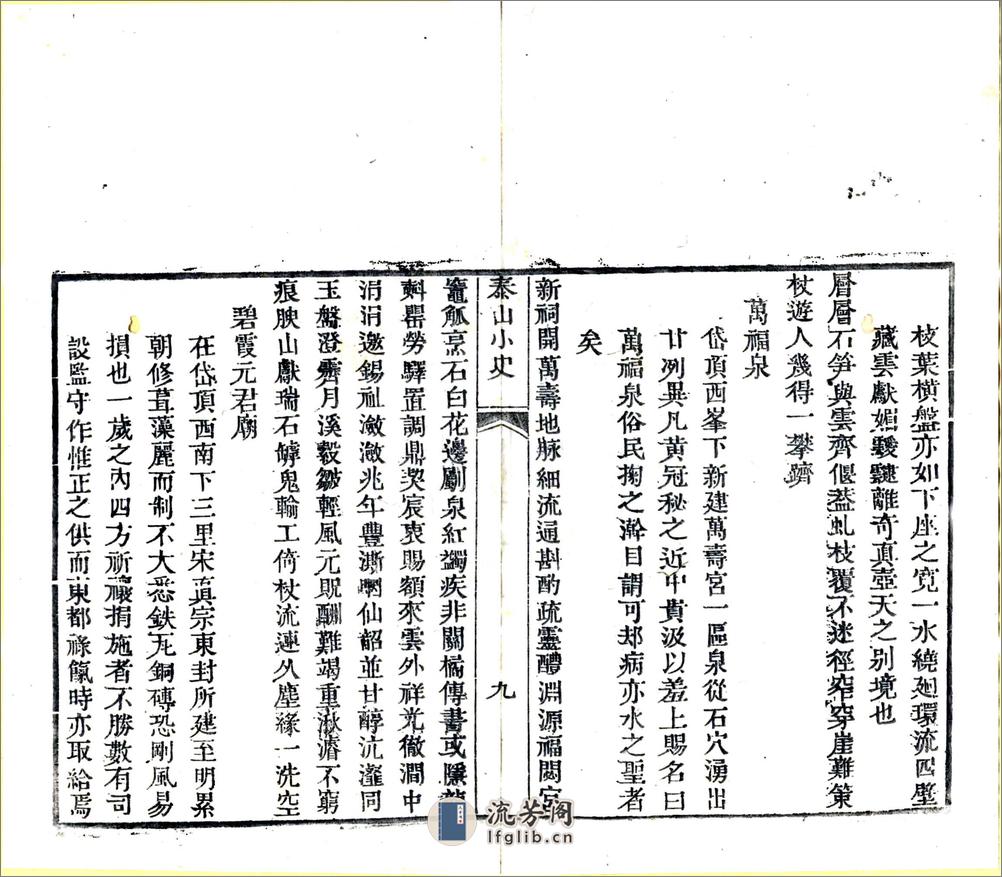 枝葉橫盤亦如下座之寬一水繞廻環流四壁
藏雲獻媚驂驪離奇真壺天之別境也
層層石笋與雲齊偃葢虬枝覆不迷徑窄穿崖難策
杖遊人幾得一攀躋
萬福泉
岱頂西峯下新建萬壽宮一區泉從石穴湧出
甘冽異凡黃冠秘之近中貴汲以羞上賜名曰
萬福泉俗民掬之澣目謂可却病亦水之聖者
矣
新祠開萬壽地脉細流通斟酌疏靈醴淵源福閟宮
泰山小史
九
竈觚烹石白花邊劚泉紅蠲疾非關橘傳書或隱龍
㪺罍勞驛置調鼎契宸衷賜額來雲外祥光徹澗中
涓涓邀錫祉瀲瀲兆年豐澌嚼仙韶並甘醇沆瀣同
玉盤澄霽月溪縠皺輕風元旣酬難竭重湫濬不窮
痕腴山獻瑞石罅鬼輸工倚杖流連久塵緣一洗空
碧霞元君廟
在岱頂西南下三里宋真宗東封所建至明累
朝修葺藻麗而制不大悉鉄瓦銅磚恐剛風易
損也一歲之內四方祈禳捐施者不勝數有司
設監守作惟正之供而東都祿餼時亦取給焉
流芳阁
lfglib.cn